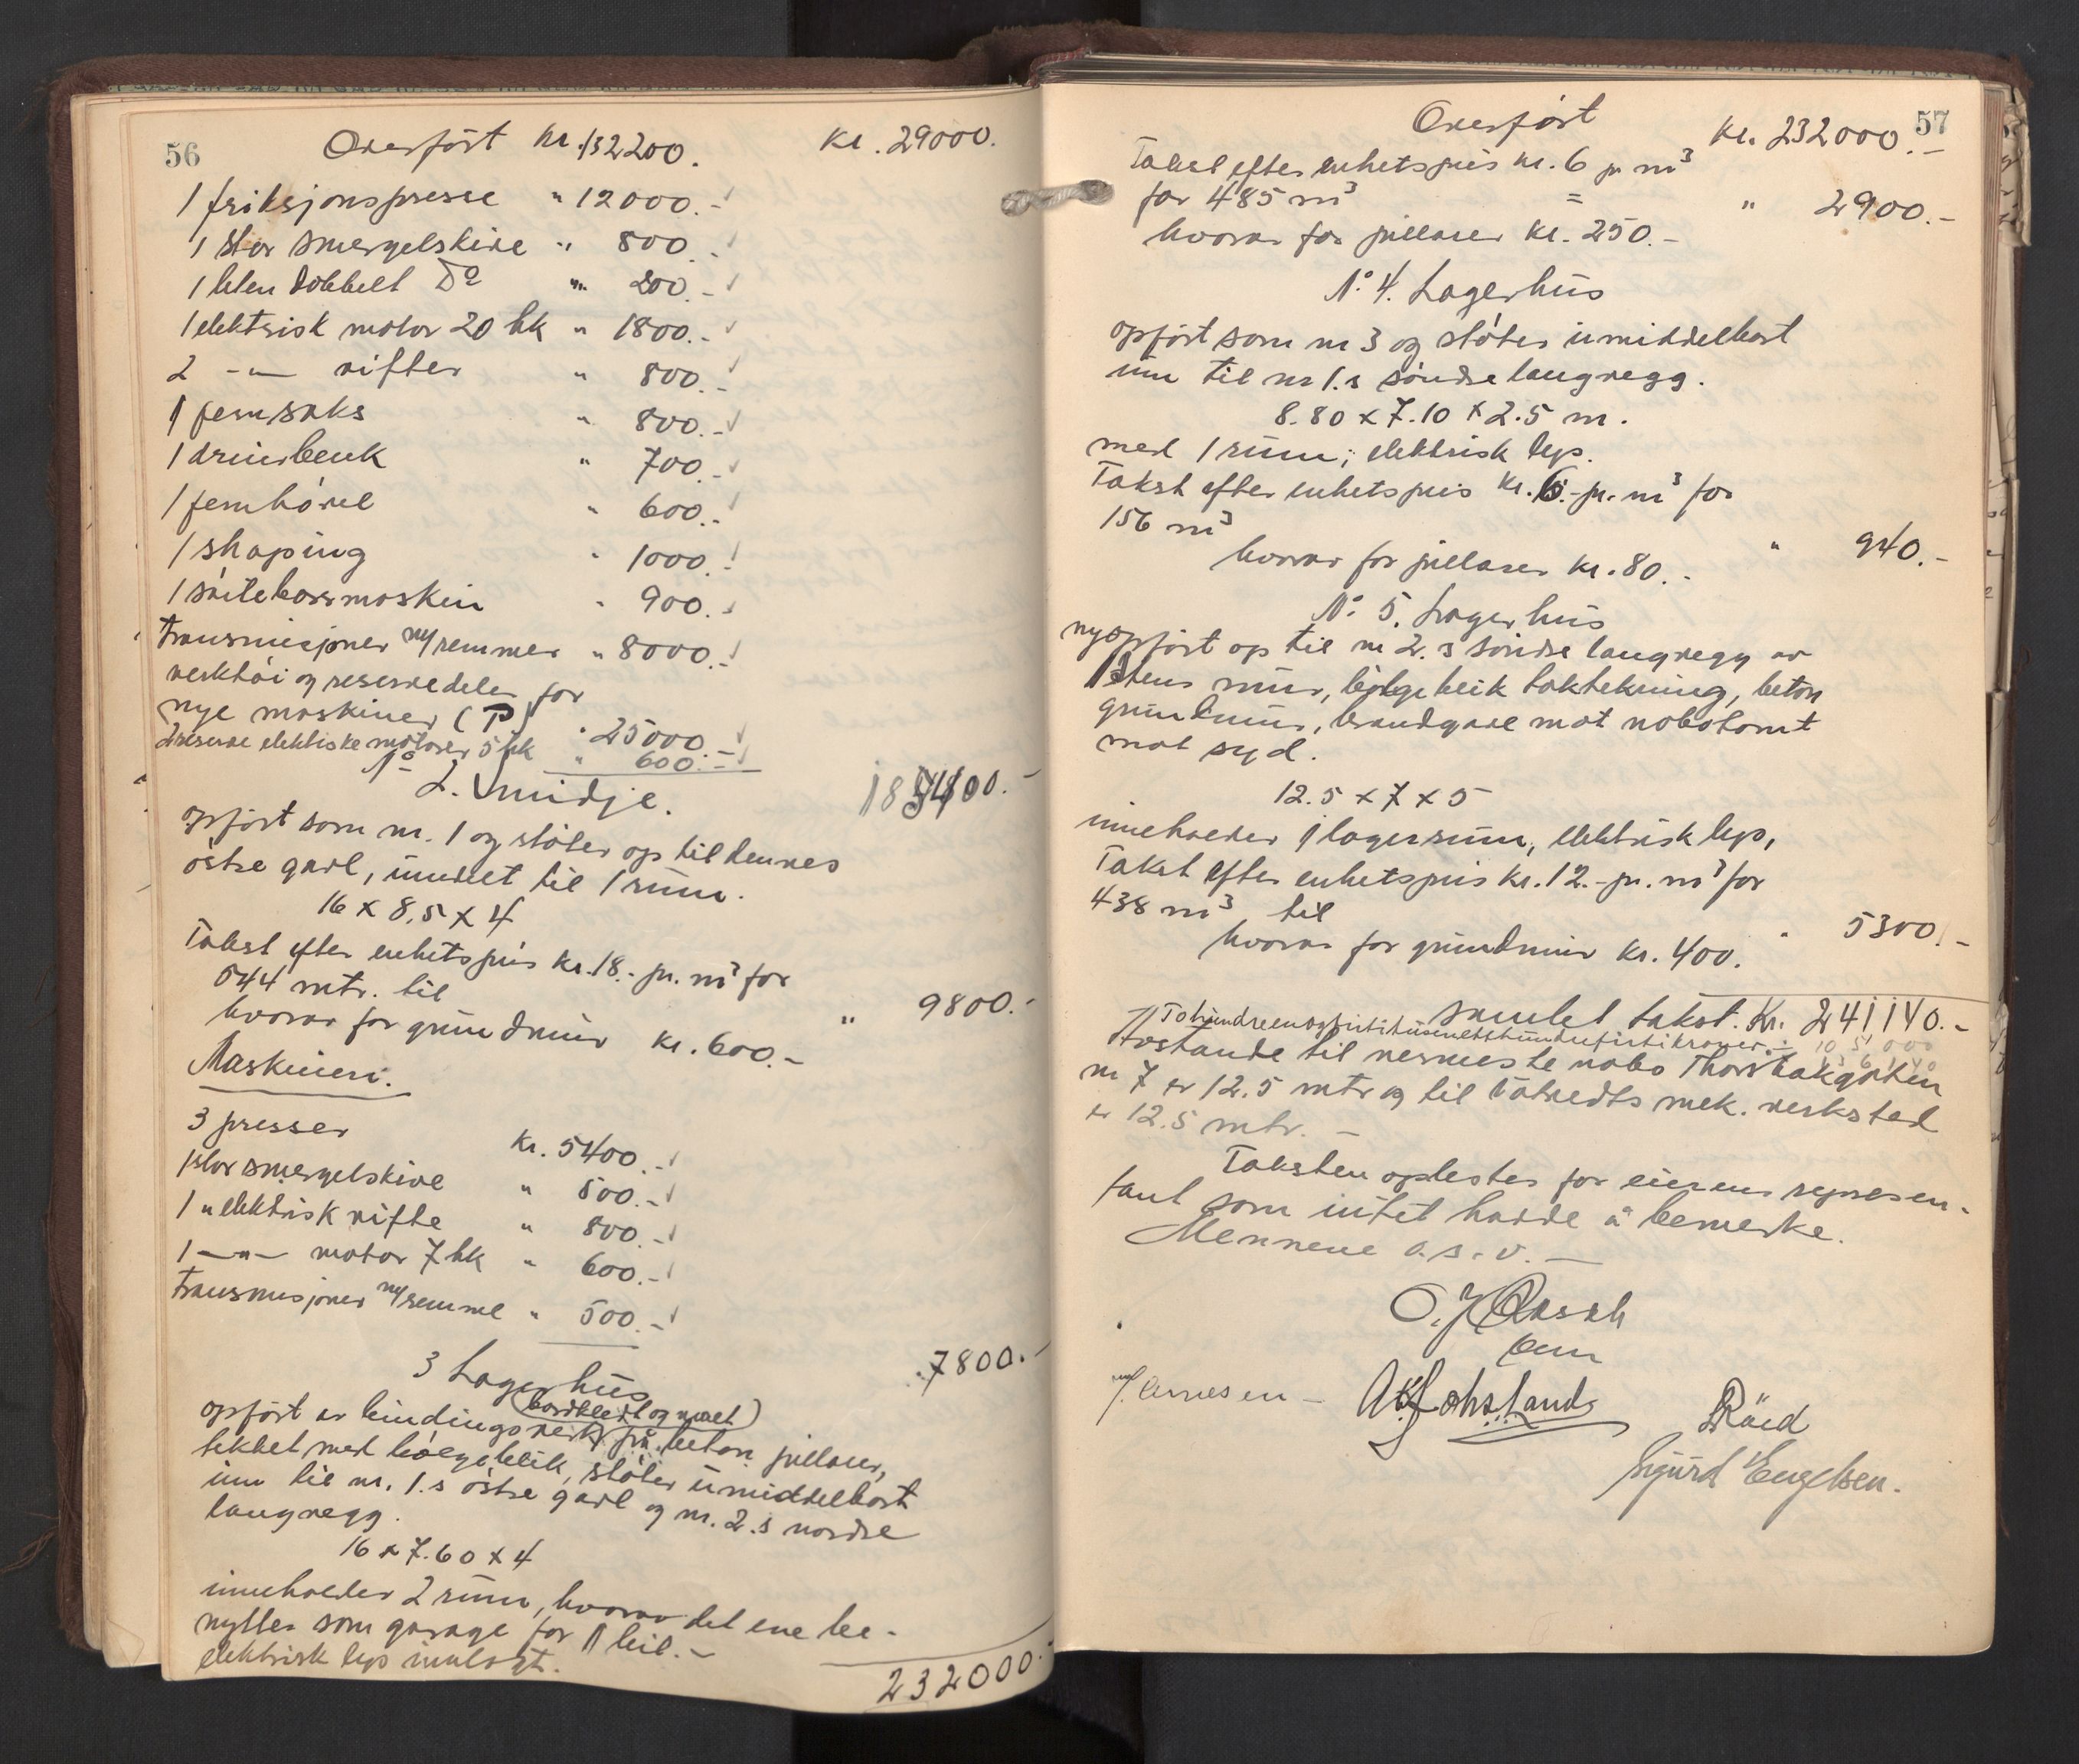 56
Overført kr. 132200. kr. 29000.
1 friksjonspresse " 12000.-
1 stor smergelskive " 800.-
1 liten dobbelt Do " 200.-
1 elektrisk motor 20 hk " 1800.-
2 -"- vifter " 800.-
1 jernsaks " 800.-
1 dreiebenk " 700.-
1 jernhøvel " 600.-
1 shaping " 1000.-
1 søileboremaskin " 900.-
Transmisjoner m/remmer " 8000.-
verktøi og reservedeler for
nye maskiner (P) " 25000.-
2 reserve elektriske motorer 5 hk " 600.-
185400.-
No 2. Smidje.
opført som nr. 1 og støter op til dennes
østre gavl, inndelt til 1 rum.
16 x 8,5 x 4
Takst efter enhetspris kr. 18.- pr. m3 for
544 mtr. til " 9800.-
hvorav for grundmur kr. 600.-
Maskineri.
3 presser kr. 5400.-
1 stor smergelskive " 500.-
1 " elektrisk vifte " 800.-
1 -"- motor 7 hk " 600.-
Transmisjoner m/remme " 500.-
7800.-
3 Lagerhus
(bordkledt og malt)
opført av bindingsverk på beton pillarer,
tekket med bølgeblik, støter umiddelbart
inn til nr. 1.s østre gavl og nr. 2.s nordre
langvegg.
16 x 7.60 x 4
inneholder 2 rum, hvorav det ene be-
nyttes som garage for 1 bil.-
elektrisk lys innlagt.
232000.-
57
Overført kr. 232000.-
Takst efter enhetspris kr. 6 pr m3
for 485 m3 = " 2900.-
hvorav for pillarer kr. 250.-
No 4. Lagerhus
opført som nr 3 og støter umiddelbart
inn til nr 1.s søndre langvegg.
8.80 x 7.10 x 2.5 m.
med 1 rum; elektrisk lys.
Takst efter enhetspris kr. 6.- pr. m3 for
156 m3 " 940.-
hvorav for pillarer kr. 80.-
No 5. Lagerhus
nyopført op til nr 2.s søndre langvegg av
1 stens mur, bølgeblik taktekning, beton
grundmur, brandgavl mot nabotomt
mot syd.
12.5 x 7 x 5
inneholder 1 lagerrum, elektrisk lys,
Takst efter enhetspris kr. 12.- pr. m3 for
438 m3, til " 5300.-
hvorav for grundmur kr. 400.
Samlet takst. Kr. 241140.-
Tohundreenogførtitusenetthundreførtikroner.-
Avstande til nermeste nabo Thorsbakgaten
nr 7 er 12.5 mtr og til Tøtvedts mek. verksted
er 12.5 mtr. -
Taksten oplestes for eierens represen-
tant som intet hadde å bemerke.
Mennene o.s.v. -
O. J. Aasah
Arnesen -
Råed
Sigurd Engelsen.